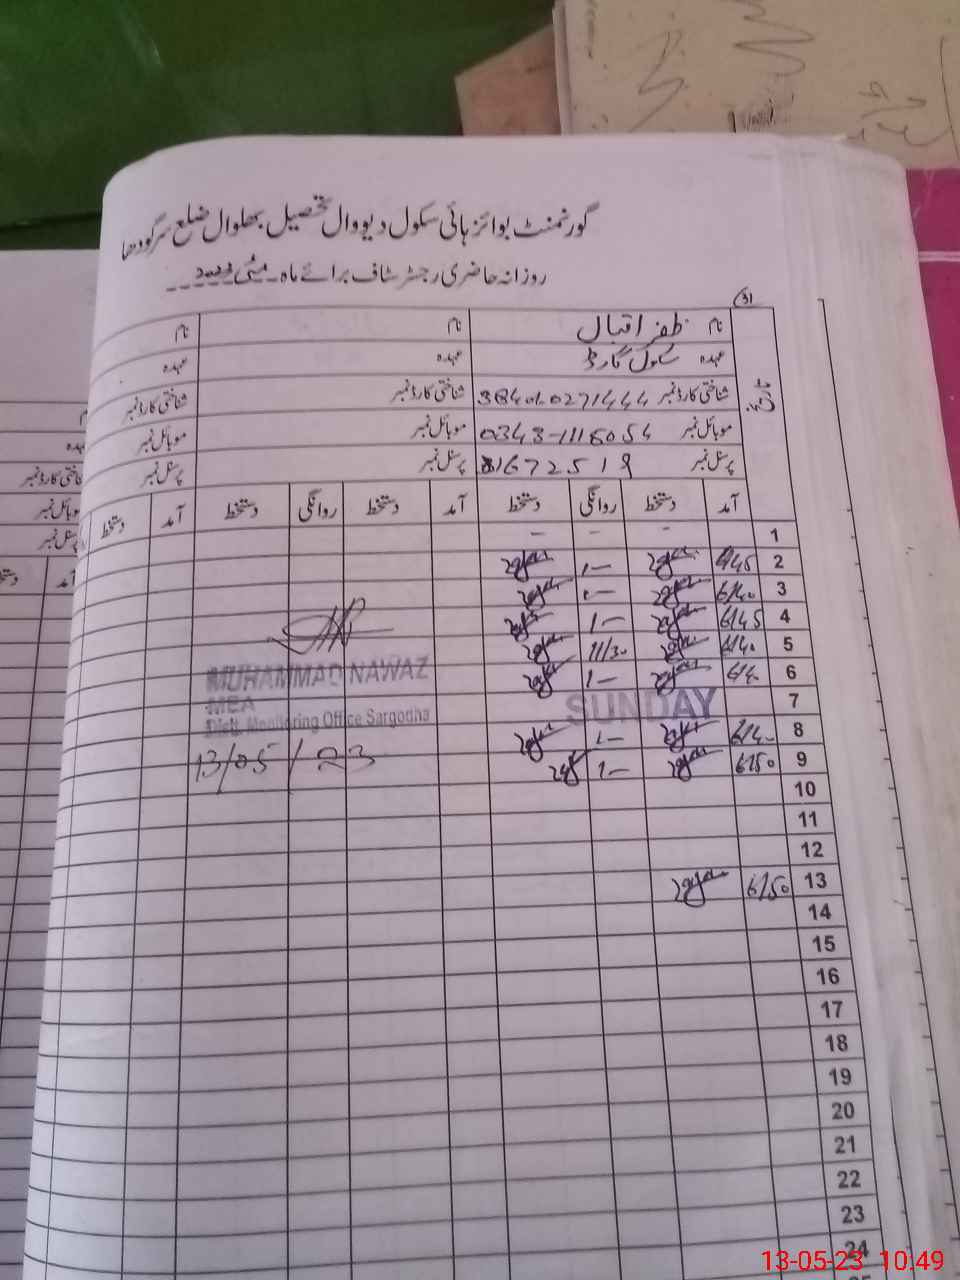 گورنمنٹ بوائز ہائی سکول دیووال تحصیل بھلوال ضلع سرگودھا
روزانہ حاضری رجسٹر سٹاف برائے ماہ مئی 2023
31
تاریخ نام ظفر اقبال نام نام
عہدہ سکول گارڈ عہدہ عہدہ
شناختی کارڈ نمبر شناختی کارڈ نمبر شناختی کارڈ نمبر
موبائل نمبر 0343-1116054 موبائل نمبر موبائل نمبر
پرسنل نمبر 31672519 پرسنل نمبر پرسنل نمبر
آمد دستخط روانگی دستخط آمد دستخط روانگی دستخط آمد دستخط
1 - - -
2 6/45 1-
3 6/40 1-
4 6/45 1-
5 6/40 11/30
6 6/40 1-
7 SUNDAY
8 6/40 1-
9 6/50 1-
10
11
12
13 6/50
14
15
16
17
18
19
20
21
22
23
24
MUHAMMAD NAWAZ
MEA
Distt. Monitoring Office Sargodha
13/05/23
13-05-23 10.49